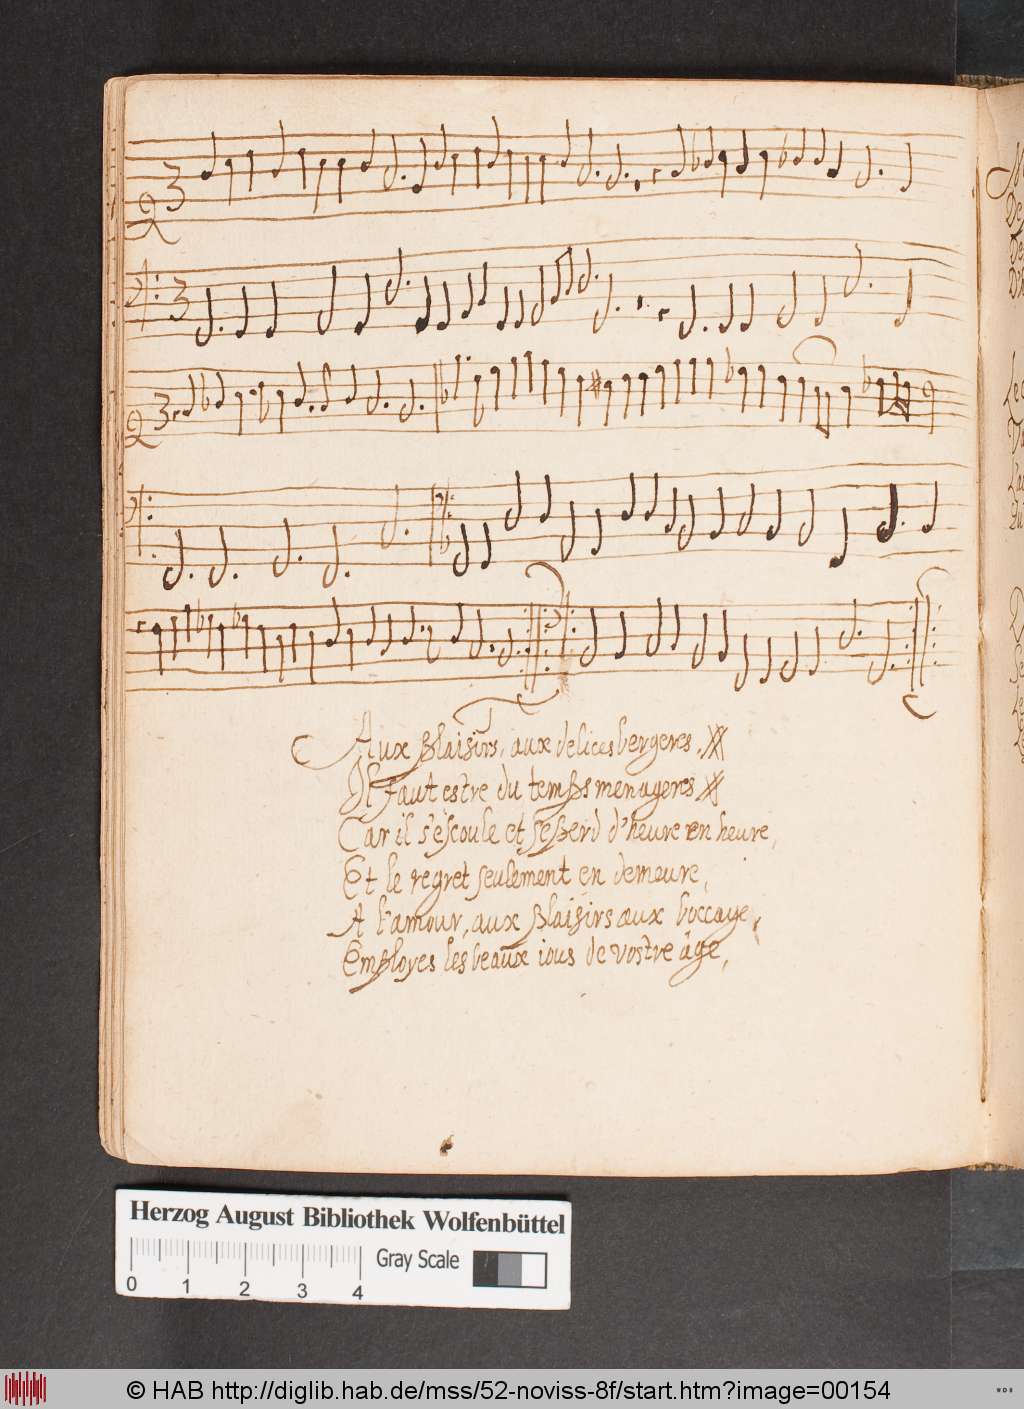 Aux plaisirs, aux delices bergeres
Il faut estre du temps menageres
Car il s'escoule et se perd d'heure en heure,
Et le regret seulement en demeure,
A l'amour, aux plaisirs aux boccage,
Employes les beaux ious de vostre âge,
Herzog August Bibliothek Wolfenbüttel
Gray Scale
0 1 2 3 4
© HAB http://diglib.hab.de/mss/52-noviss-8f/start.htm?image=00154